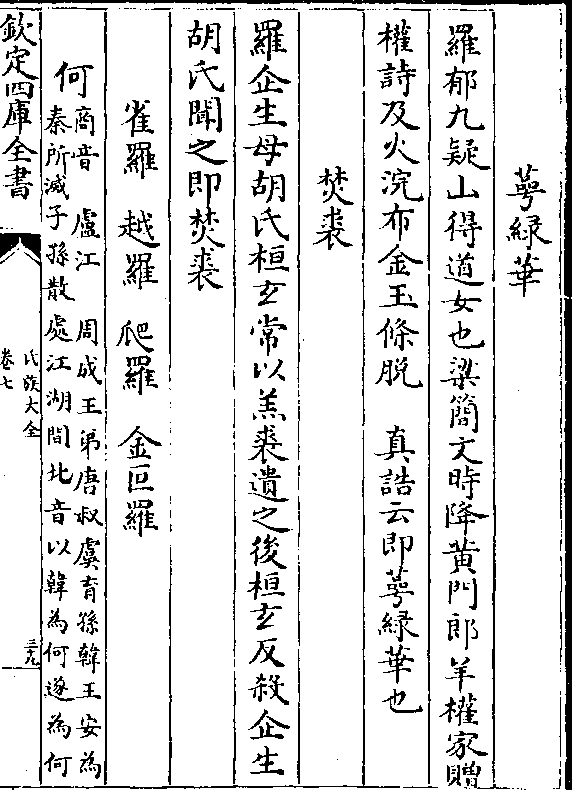 萼緑華
羅郁九疑山得道女也梁簡文時降黄門郎羊權家贈
權詩及火浣布金玉條脱　真誥云即萼緑華也
焚裘
羅企生母胡氏桓玄常以羔裘遺之後桓玄反殺企生
胡氏聞之即焚裘
雀羅　越羅　爬羅　金叵羅
何
商音　盧江　周成王弟唐叔虞育孫韓王安為
秦所滅子孫散處江湖間北音以韓為何遂為何
欽定四庫全書
氏族大全
卷七
三九